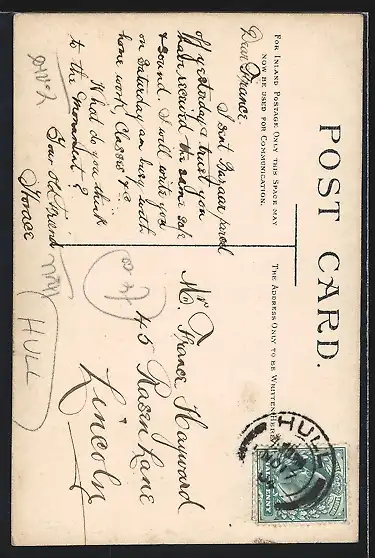 POST CARD.
FOR INLAND POSTAGE ONLY THIS SPACE MAY
NOW BE USED FOR COMMUNICATION.
THE ADDRESS ONLY TO BE WRITTEN HERE.
Dear France.
I sent Bazaar parcel
off yesterday & trust you
have received the same safe
& sound. I will write you
on Saturday am busy with
home work, Classes &c.
What do you think
to the Monument?
Your old friend
Horace
Mr France Hayward
45 Rasen Lane
Lincoln
HULL
HULL